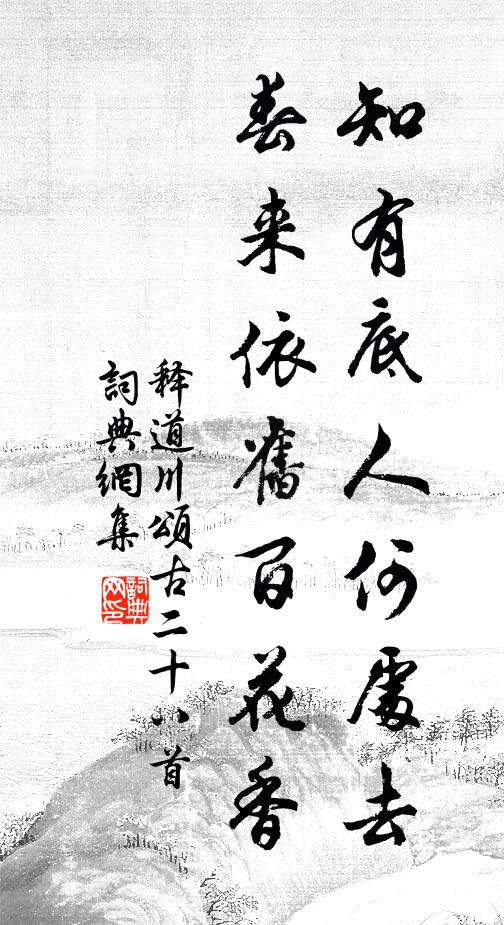 知有底人何處去
春来依舊百花香
释道川頌古二十八首
詞典網集
詞典网印